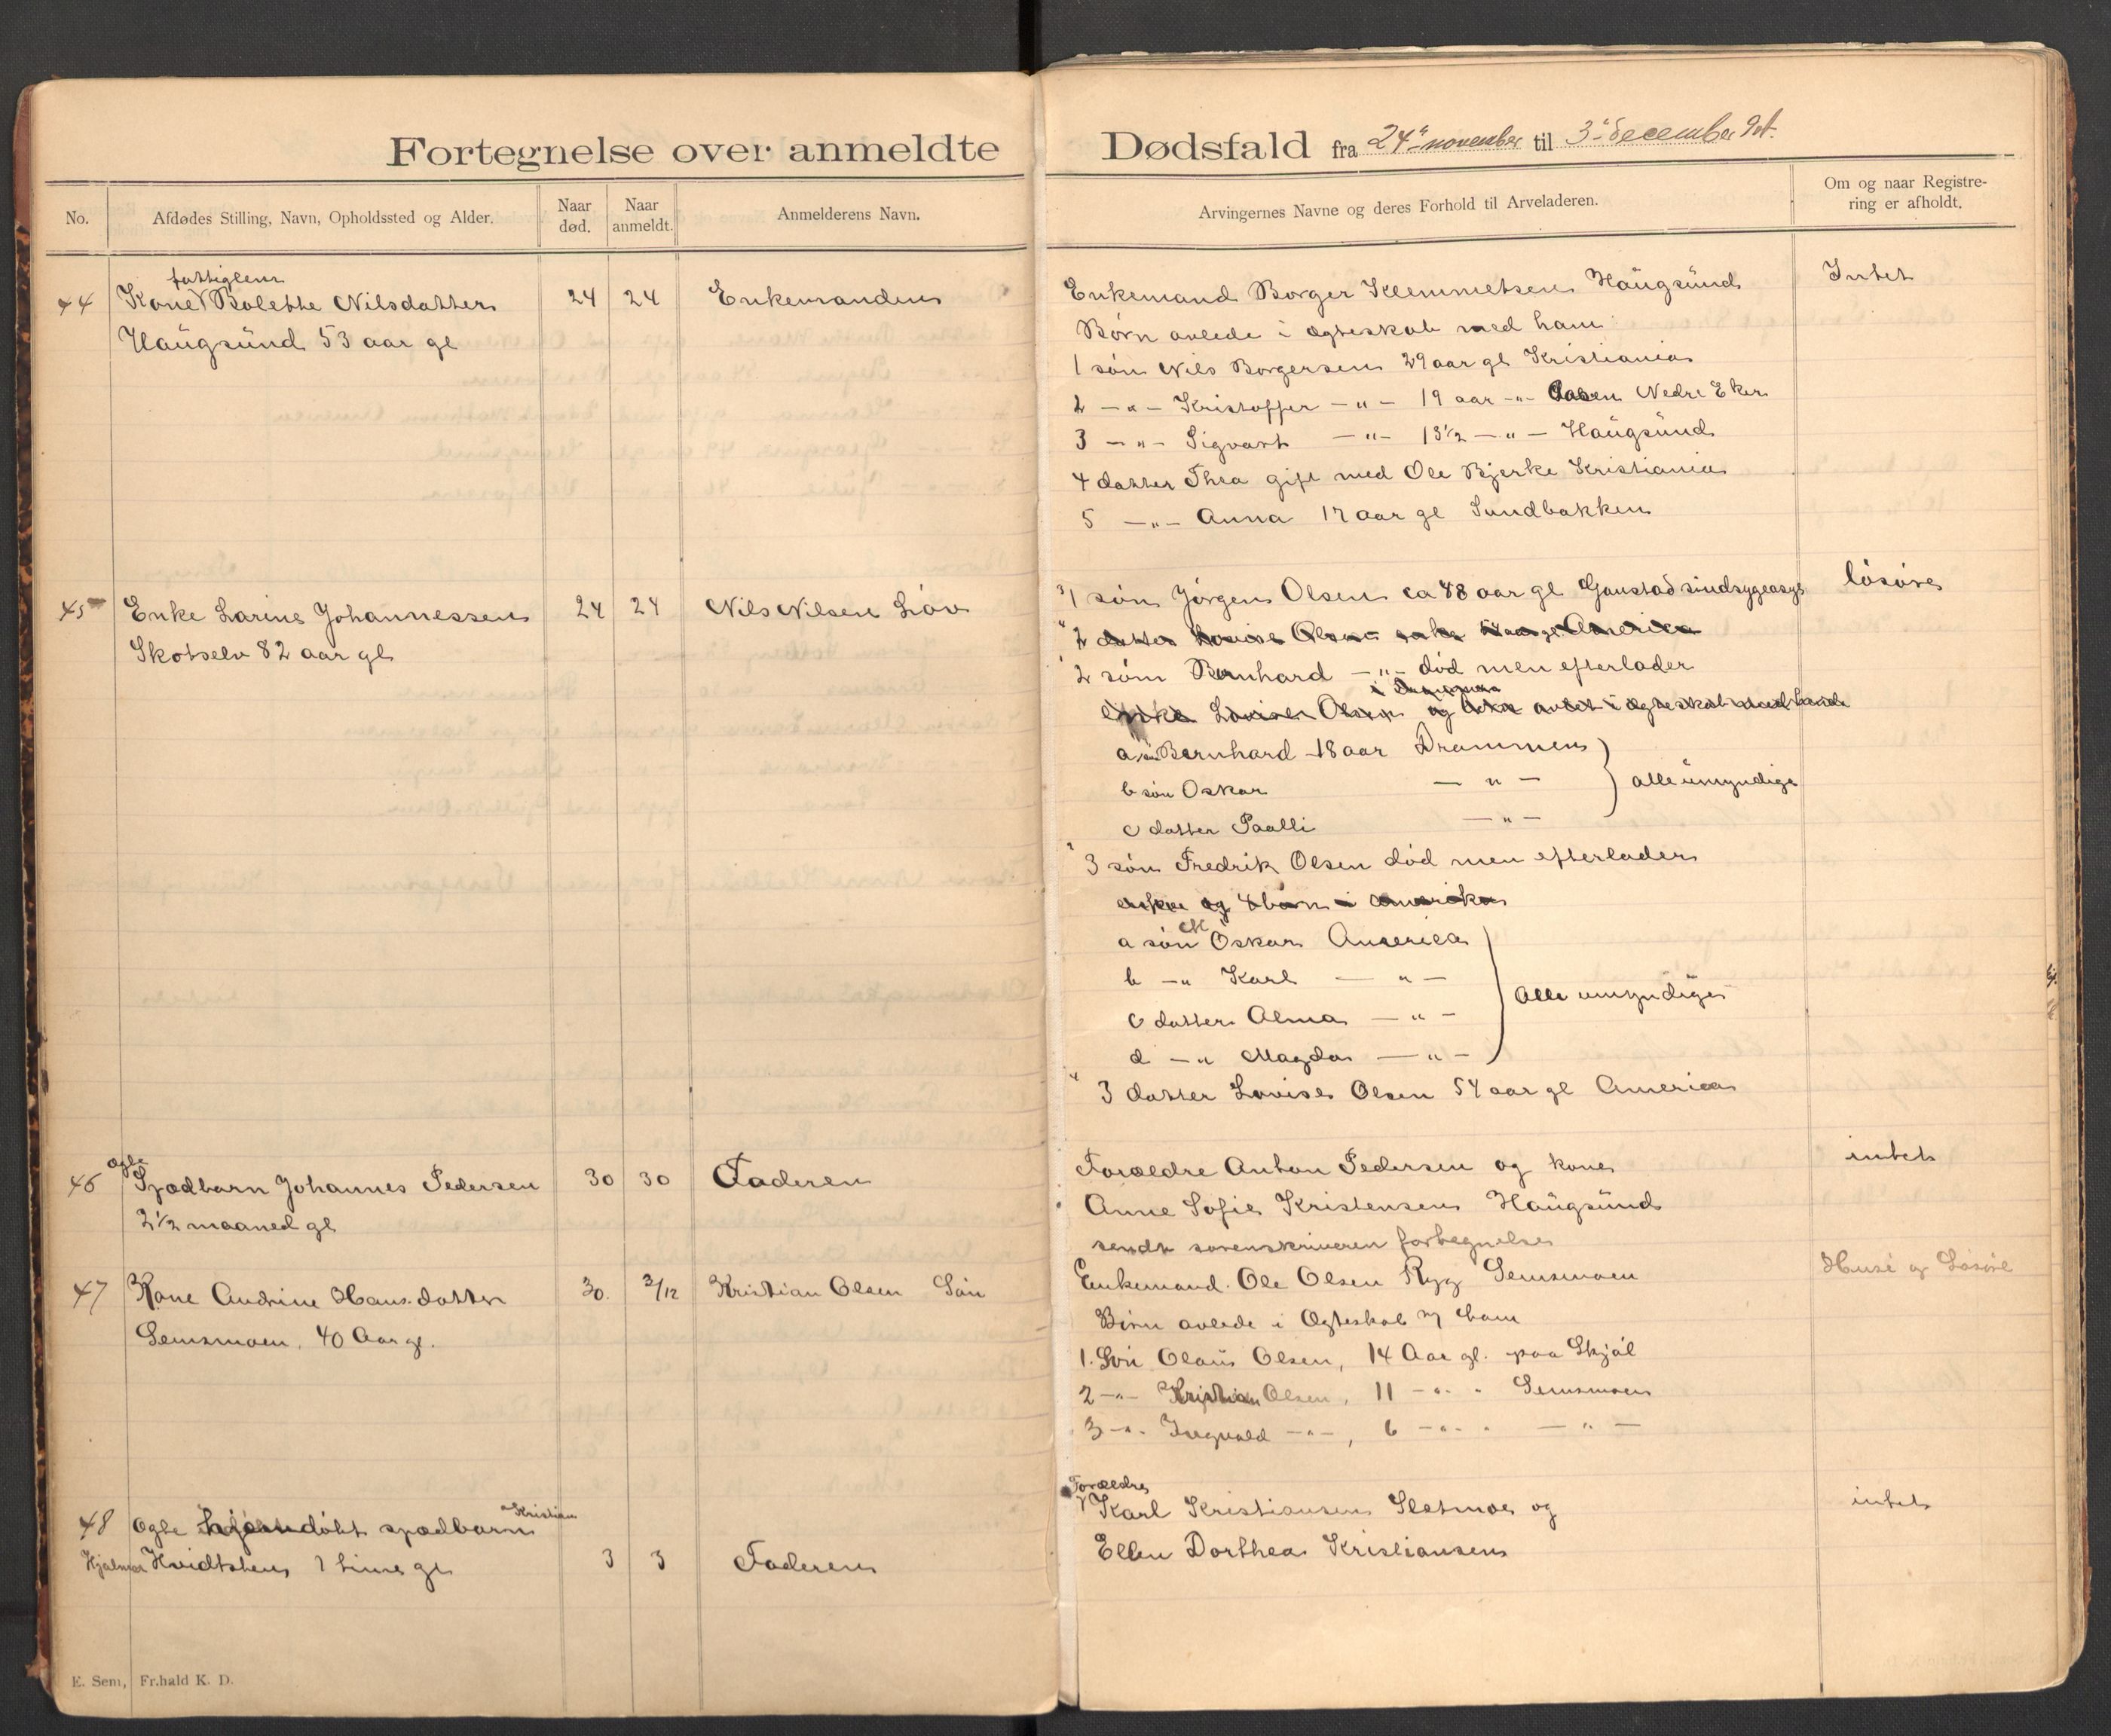 Fortegnelse over anmeldte Dødsfald fra 24de november til 3de december
No.
Afdødes Stilling, Navn, Opholdssted og Alder.
Naar død.
Naar anmeldt.
Anmelderens Navn.
Arvingernes Navne og deres Forhold til Arveladeren.
Om og naar Registrering er afholdt.
fattiglem
44 Kone Bolette Nilsdatter 24 24 Enkemanden
Haugsund 53 aar gl
Enkemand Borger Klemmetsen Haugsund Intet
Børn avlede i ægteskab med ham
1 søn Nils Borgersen 29 aar gl Kristiania
2 —"— Kristoffer —"— 19 aar —"— Aasen Nedre Eker
3 —"— Sigvart —"— 13½ —"— Haugsund
4 datter Thea gift med Ole Bjerke Kristiania
5 —"— Anna 17 aar gl Sundbakken
45 Enke Larine Johannessen 24 24 Nils Nilsen Løv
Skotselv 82 aar gl
1 søn Jørgen Olsen ca 48 aar gl Gaustad sindsygeasyl løsøre
2 datter Lovise Olsen America
2 søn Bernhard —"— død men efterlader
enke Lovise Olsen og avlet i ægteskab med hende
a søn Bernhard 18 aar Drammen
b søn Oskar —"— alle umyndige
c datter Paalli —"—
3 søn Fredrik Olsen død men efterlader
enke og 4 børn i amerika
a søn Oskar America
b —" Karl —"—
c datter Alma —"— Alle umyndige
d —" Magda —"—
3 datter Lovise Olsen 54 aar gl America
ægte
46 Spædbarn Johannes Pedersen 30 30 Faderen
2½ maaned gl
Forældre Anton Pedersen og kone intet
Anne Sofie Kristensen Haugsund
sendt sorenskriveren fortegnelse
47 Kone Andrine Hansdatter 30. 2/12 Kristian Olsen Søn
Semsmoen, 40 Aar gl.
Enkemand. Ole Olsen Ryg Semsmoen Huse og Løsøre
Børn avlede i Ægteskab m ham
1. Søn Olaus Olsen, 14 Aar gl. paa Skjøl
2 —"— Kristian Olsen, 11 —"— " Semsmoen
3 —"— Ingvald —"—, 6 —"— " —"—
Kristian
48 Ægte hjemdøbt spædbarn
Hjalmar Hvidtsten 1 time gl 3 3 Faderen
Forældre
Karl Kristiansen Sletmoe og intet
Ellen Dorthea Kristiansen
E. Sem, Fr.hald K. D.